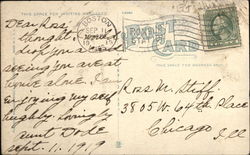 THIS SPACE FOR WRITING MESSAGES
BOSTON
SEP 11
POST CARD
THIS SPACE FOR ADDRESS ONLY
Dear Ross,
Thought
you and
seeing you are at
home alone. I am
enjoying my self
hughly. Lovingly
aunt Dode
Sept. 11. 1919
Ross M. Stiff.
3805 W. 64th Place
Chicago
Ill